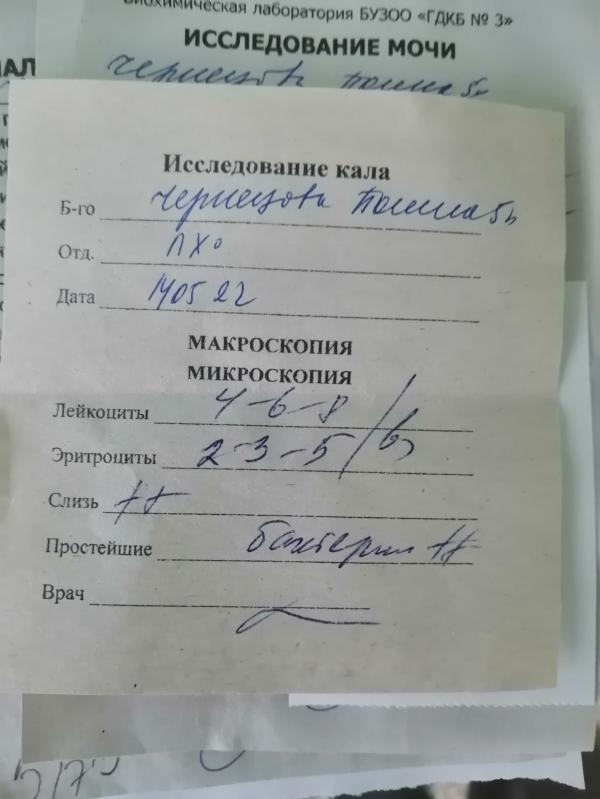 Биохимическая лаборатория БУЗОО «ГДКБ № 3»
ИССЛЕДОВАНИЕ МОЧИ
Чернецова Полина 5л
Исследование кала
Б-го Чернецова Полина 5л
Отд. ЛХО
Дата 170522
МАКРОСКОПИЯ
МИКРОСКОПИЯ
Лейкоциты 4-6-8
Эритроциты 2-3-5
Слизь ++
Простейшие бактерии ++
Врач